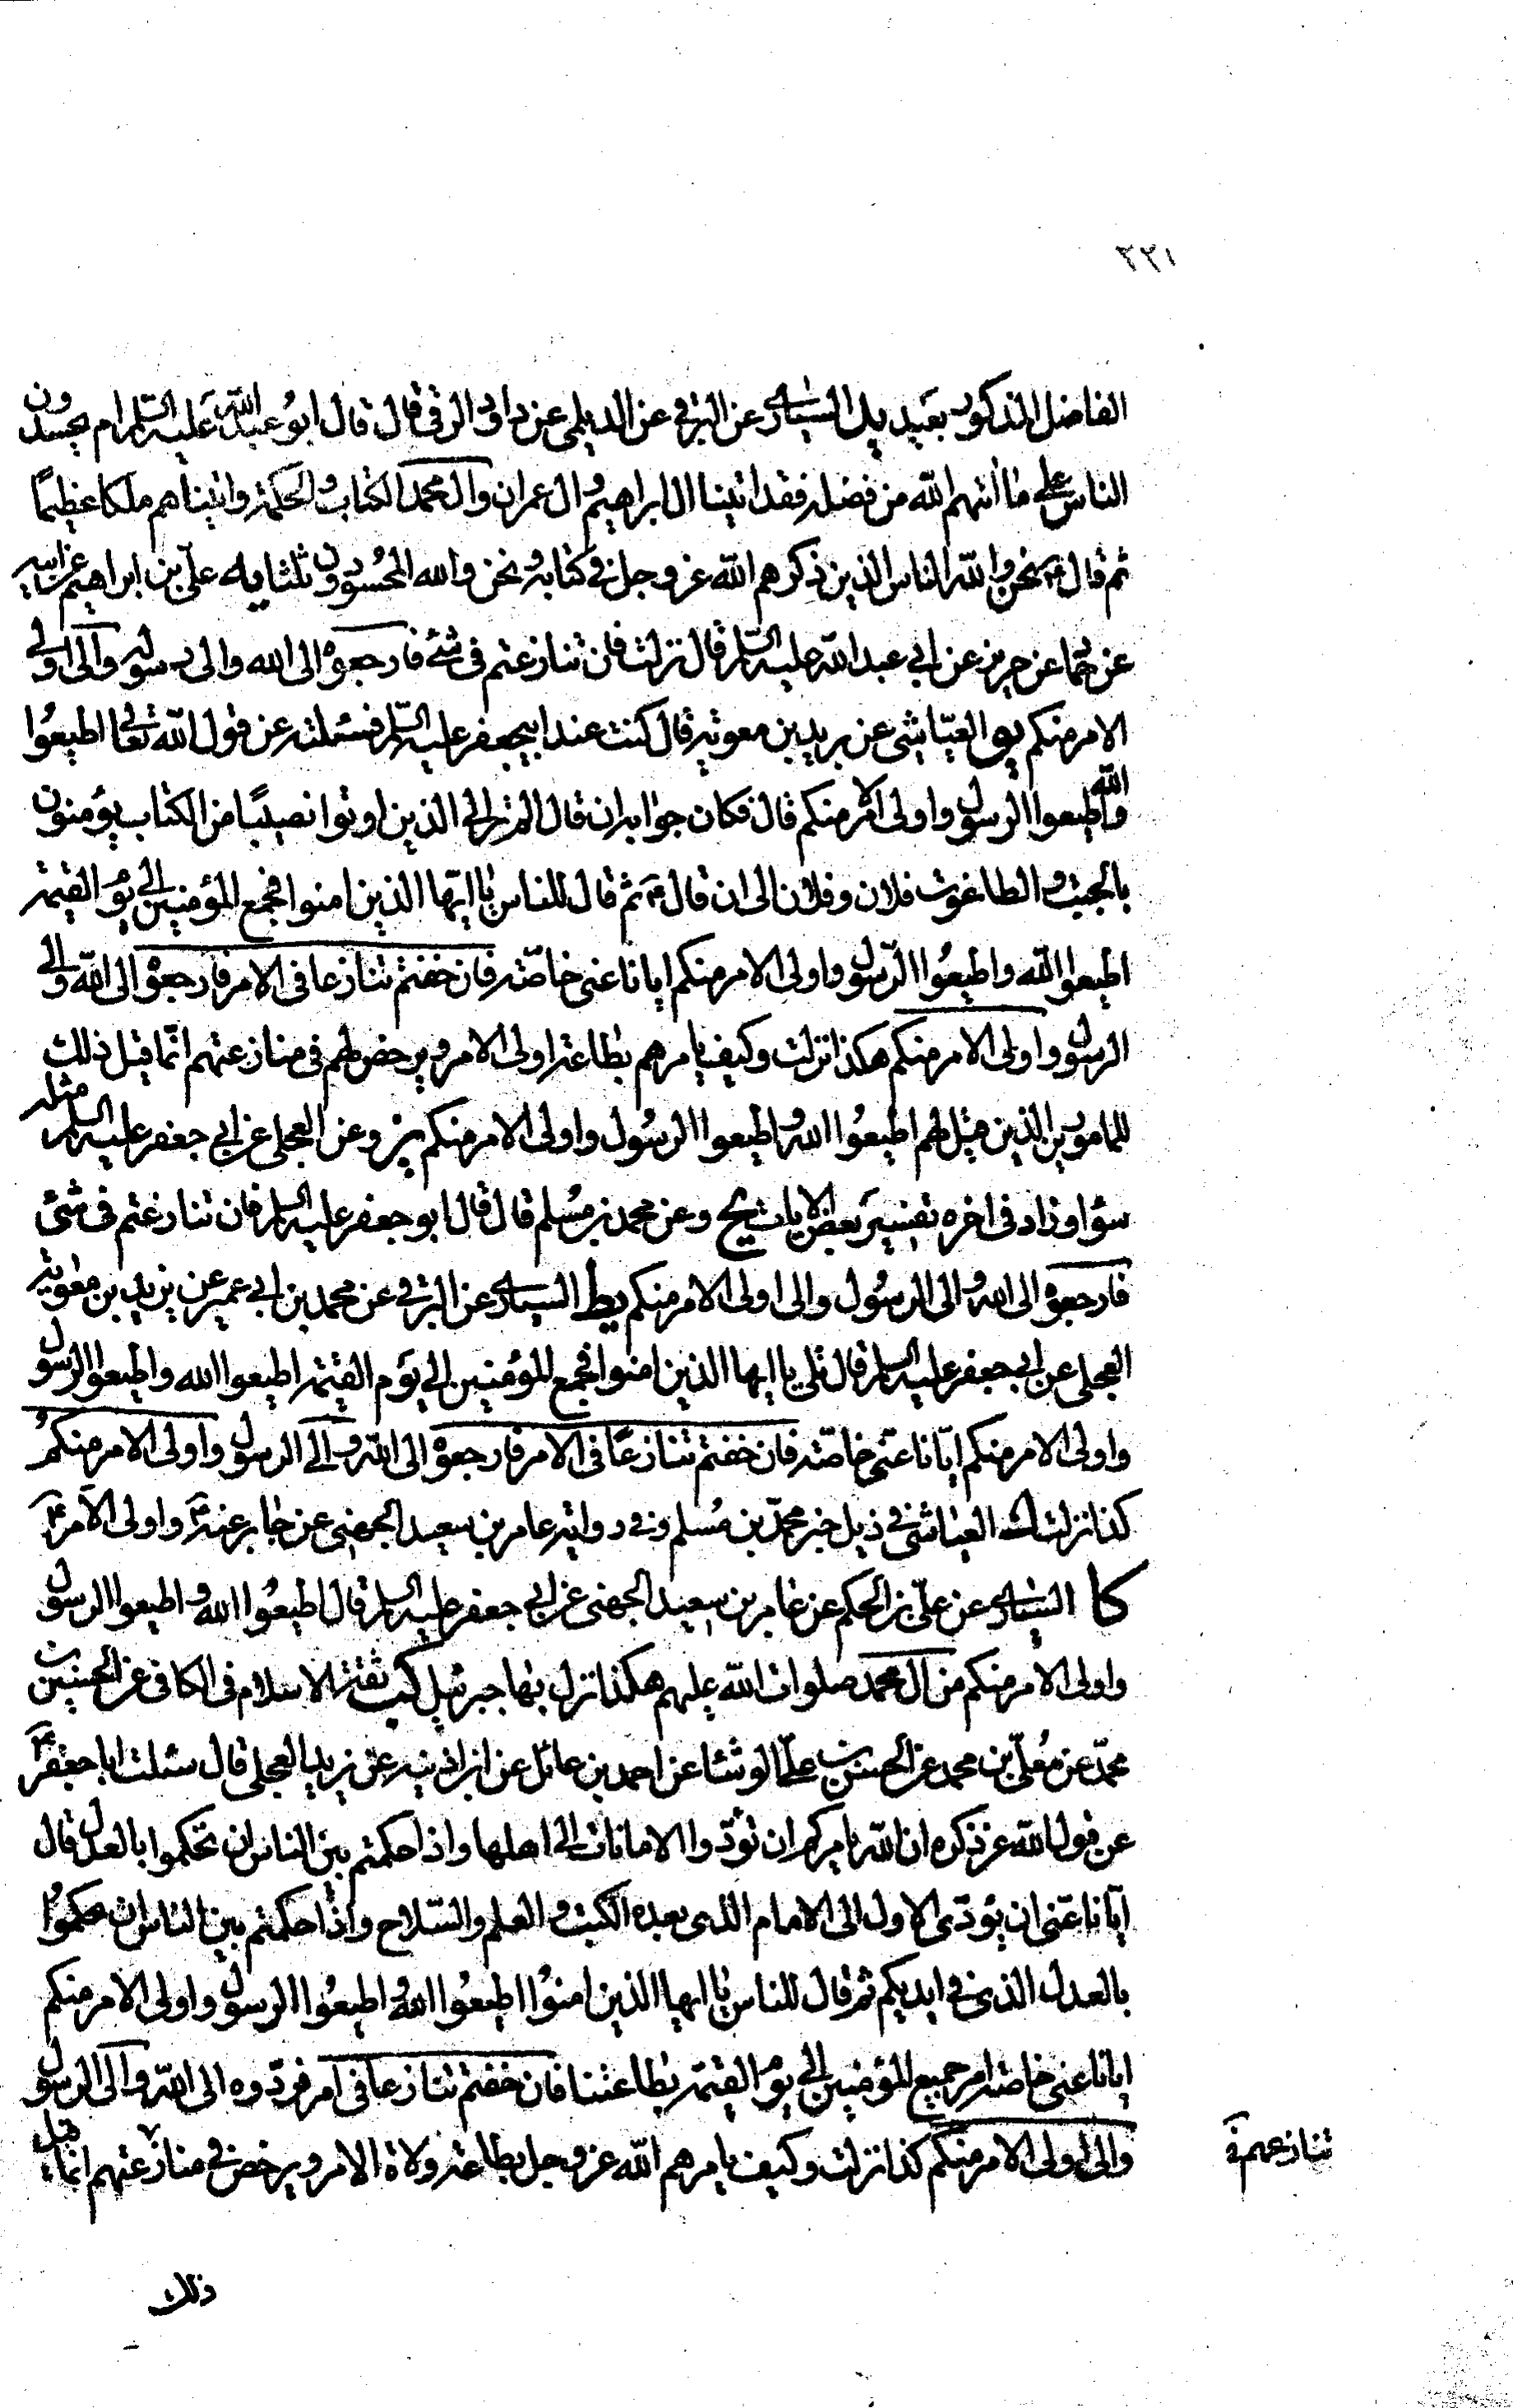 ٢٢١
الفاضل المذكور بعيد يد السياري عن البرقي عن الديلمي عن داود الرقي قال قال ابو عبد الله عليه السلم ام يحسدون
الناس على ما اتيهم الله من فضله فقد اتينا ال ابراهيم وال عمران وال محمد الكتاب والحكمة واتيناهم ملكا عظيما
ثم قال نحن والله الناس الذين ذكرهم الله عز وجل في كتابه ونحن والله المحسودون ثلثا يه علي بن ابراهيم عن ابيه
عن حماد عن حريز عن ابي عبد الله عليه السلم قال نزلت فان تنازعتم في شئ فارجعوه الى الله والى رسوله والى اولى
الامر منكم يو العياشي عن بريد بن معوية قال كنت عند ابيجعفر عليه السلم فسئلته عن قول الله تعالى اطيعوا
الله واطيعوا الرسول واولى الامر منكم قال فكان جوابه ان قال الم تر الى الذين اوتوا نصيبا من الكتاب يؤمنون
بالجبت والطاغوت فلان وفلان الى ان قال ثم قال للناس يا ايها الذين امنوا فجمع المؤمنين الى يوم القيمة
اطيعوا الله واطيعوا الرسول واولى الامر منكم ايانا عنى خاصة فان خفتم تنازعا فى الامر فارجعوه الى الله والى
الرسول واولى الامر منكم هكذا نزلت وكيف يامرهم بطاعة اولى الامر ويرخص لهم فى منازعتهم انما قيل ذلك
للمامورين الذين قيل لهم اطيعوا الله واطيعوا الرسول واولى الامر منكم يز وعن العجلي عن ابي جعفر عليه السلم مثله
سوا وزاد فى اخره تفسير بعض الايات يح وعن محمد بن مسلم قال قال ابو جعفر عليه السلم فان تنازعتم فى شئ
فارجعوه الى الله والى الرسول والى اولى الامر منكم يط السياري عن البرقي عن محمد بن ابي عمير عن بريد بن معوية
العجلي عن ابي جعفر عليه السلم قال تلى يا ايها الذين امنوا فجمع المؤمنين الى يوم القيمة اطيعوا الله واطيعوا الرسول
واولى الامر منكم ايانا عنى خاصة فان خفتم تنازعا فى الامر فارجعوه الى الله والى الرسول واولى الامر منكم
كذا نزلت ك العياشي في ذيل خبر محمد بن مسلم وفى رواية عامر بن سعيد الجهني عن جابر عنه واولى الامر
كا السياري عن علي بن الحكم عن عامر بن سعيد الجهني عن ابي جعفر عليه السلم قال اطيعوا الله واطيعوا الرسول
واولى الامر منكم من ال محمد صلوات الله عليهم هكذا نزل بها جبرئيل كب ثقة الاسلام فى الكافى عن الحسين بن
محمد عن معلى بن محمد عن الحسن بن علي الوشا عن احمد بن عائذ عن ابن اذينه عن بريد العجلي قال سئلت ابا جعفر
عن قول الله عز ذكره ان الله يامركم ان تؤدوا الامانات الى اهلها واذا حكمتم بين الناس ان تحكموا بالعدل قال
ايانا عنى ان يؤدى الاول الى الامام الذى بعده الكتب والعلم والسلاح واذا حكمتم بين الناس ان تحكموا
بالعدل الذى في ايديكم ثم قال للناس يا ايها الذين امنوا اطيعوا الله واطيعوا الرسول واولى الامر منكم
ايانا عنى خاصة امر جميع المؤمنين الى يوم القيمة بطاعتنا فان خفتم تنازعا فى امر فردوه الى الله والى الرسول
والى اولى الامر منكم كذا نزلت وكيف يامرهم الله عز وجل بطاعة ولاة الامر ويرخص في منازعتهم انما قيل
تنازعهم فى
ذلك